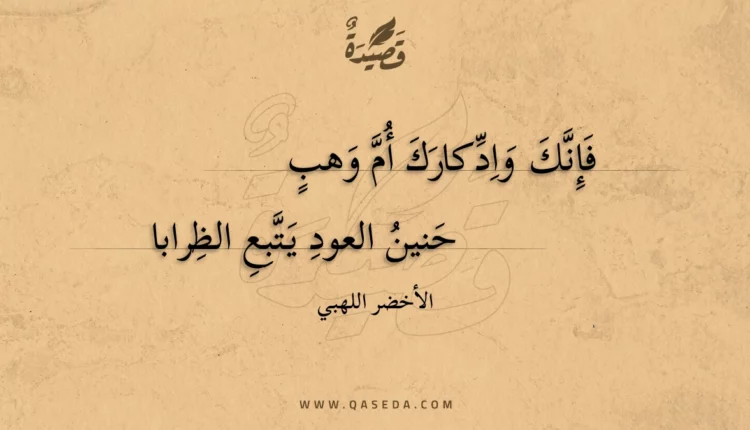 قَصِيْدَةٌ
فَإِنَّكَ وَاِدِّكارَكَ أُمَّ وَهبٍ
حَنينُ العودِ يَتَّبعِ الظِرابا
الأخضر اللهبي
WWW.QASEDA.COM